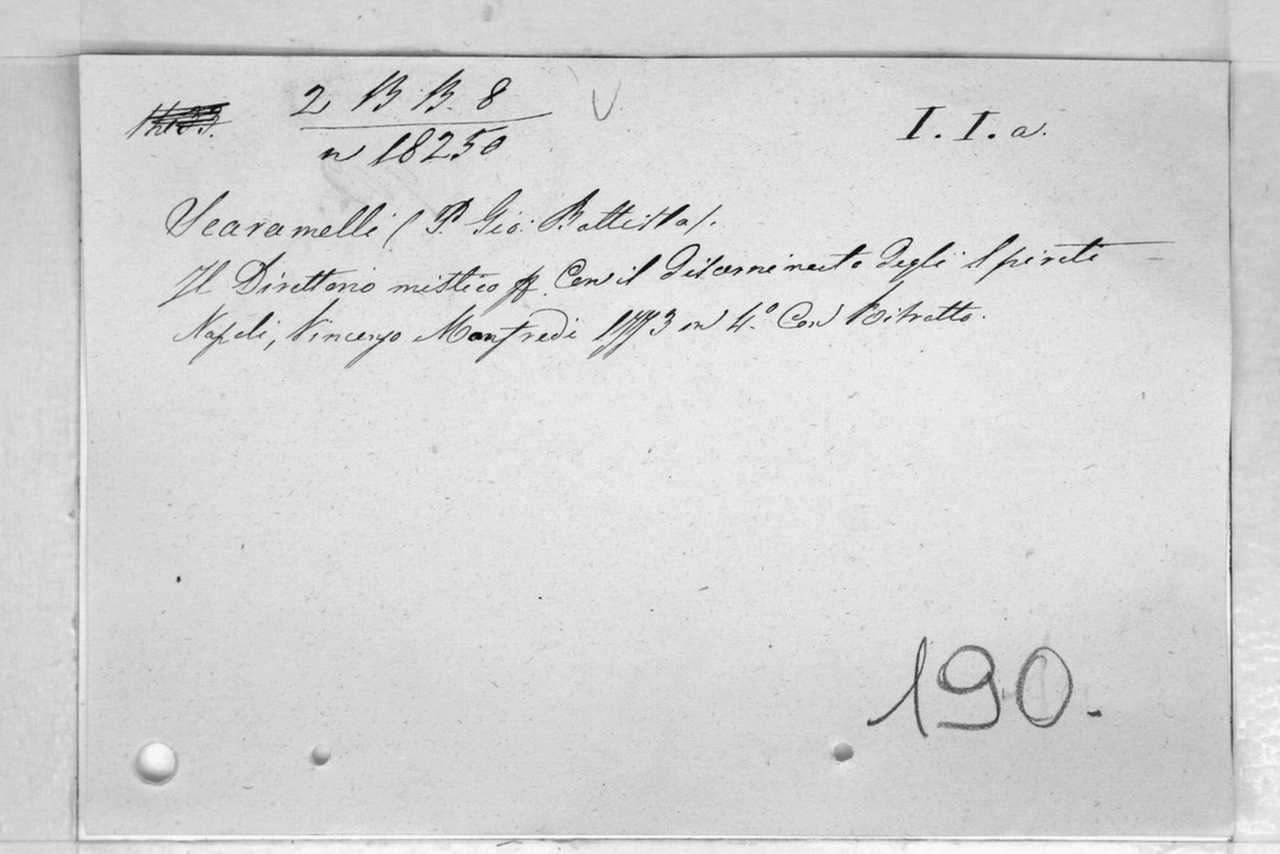 2 B B. 8 I. I. a.
n 18250
Scaramelli (P. Gio: Battista).
Il Direttorio mistico Con il discernimento degli Spiriti
Napoli, Vincenzo Manfredi 1773 in 4.º Con Ritratto.
190.